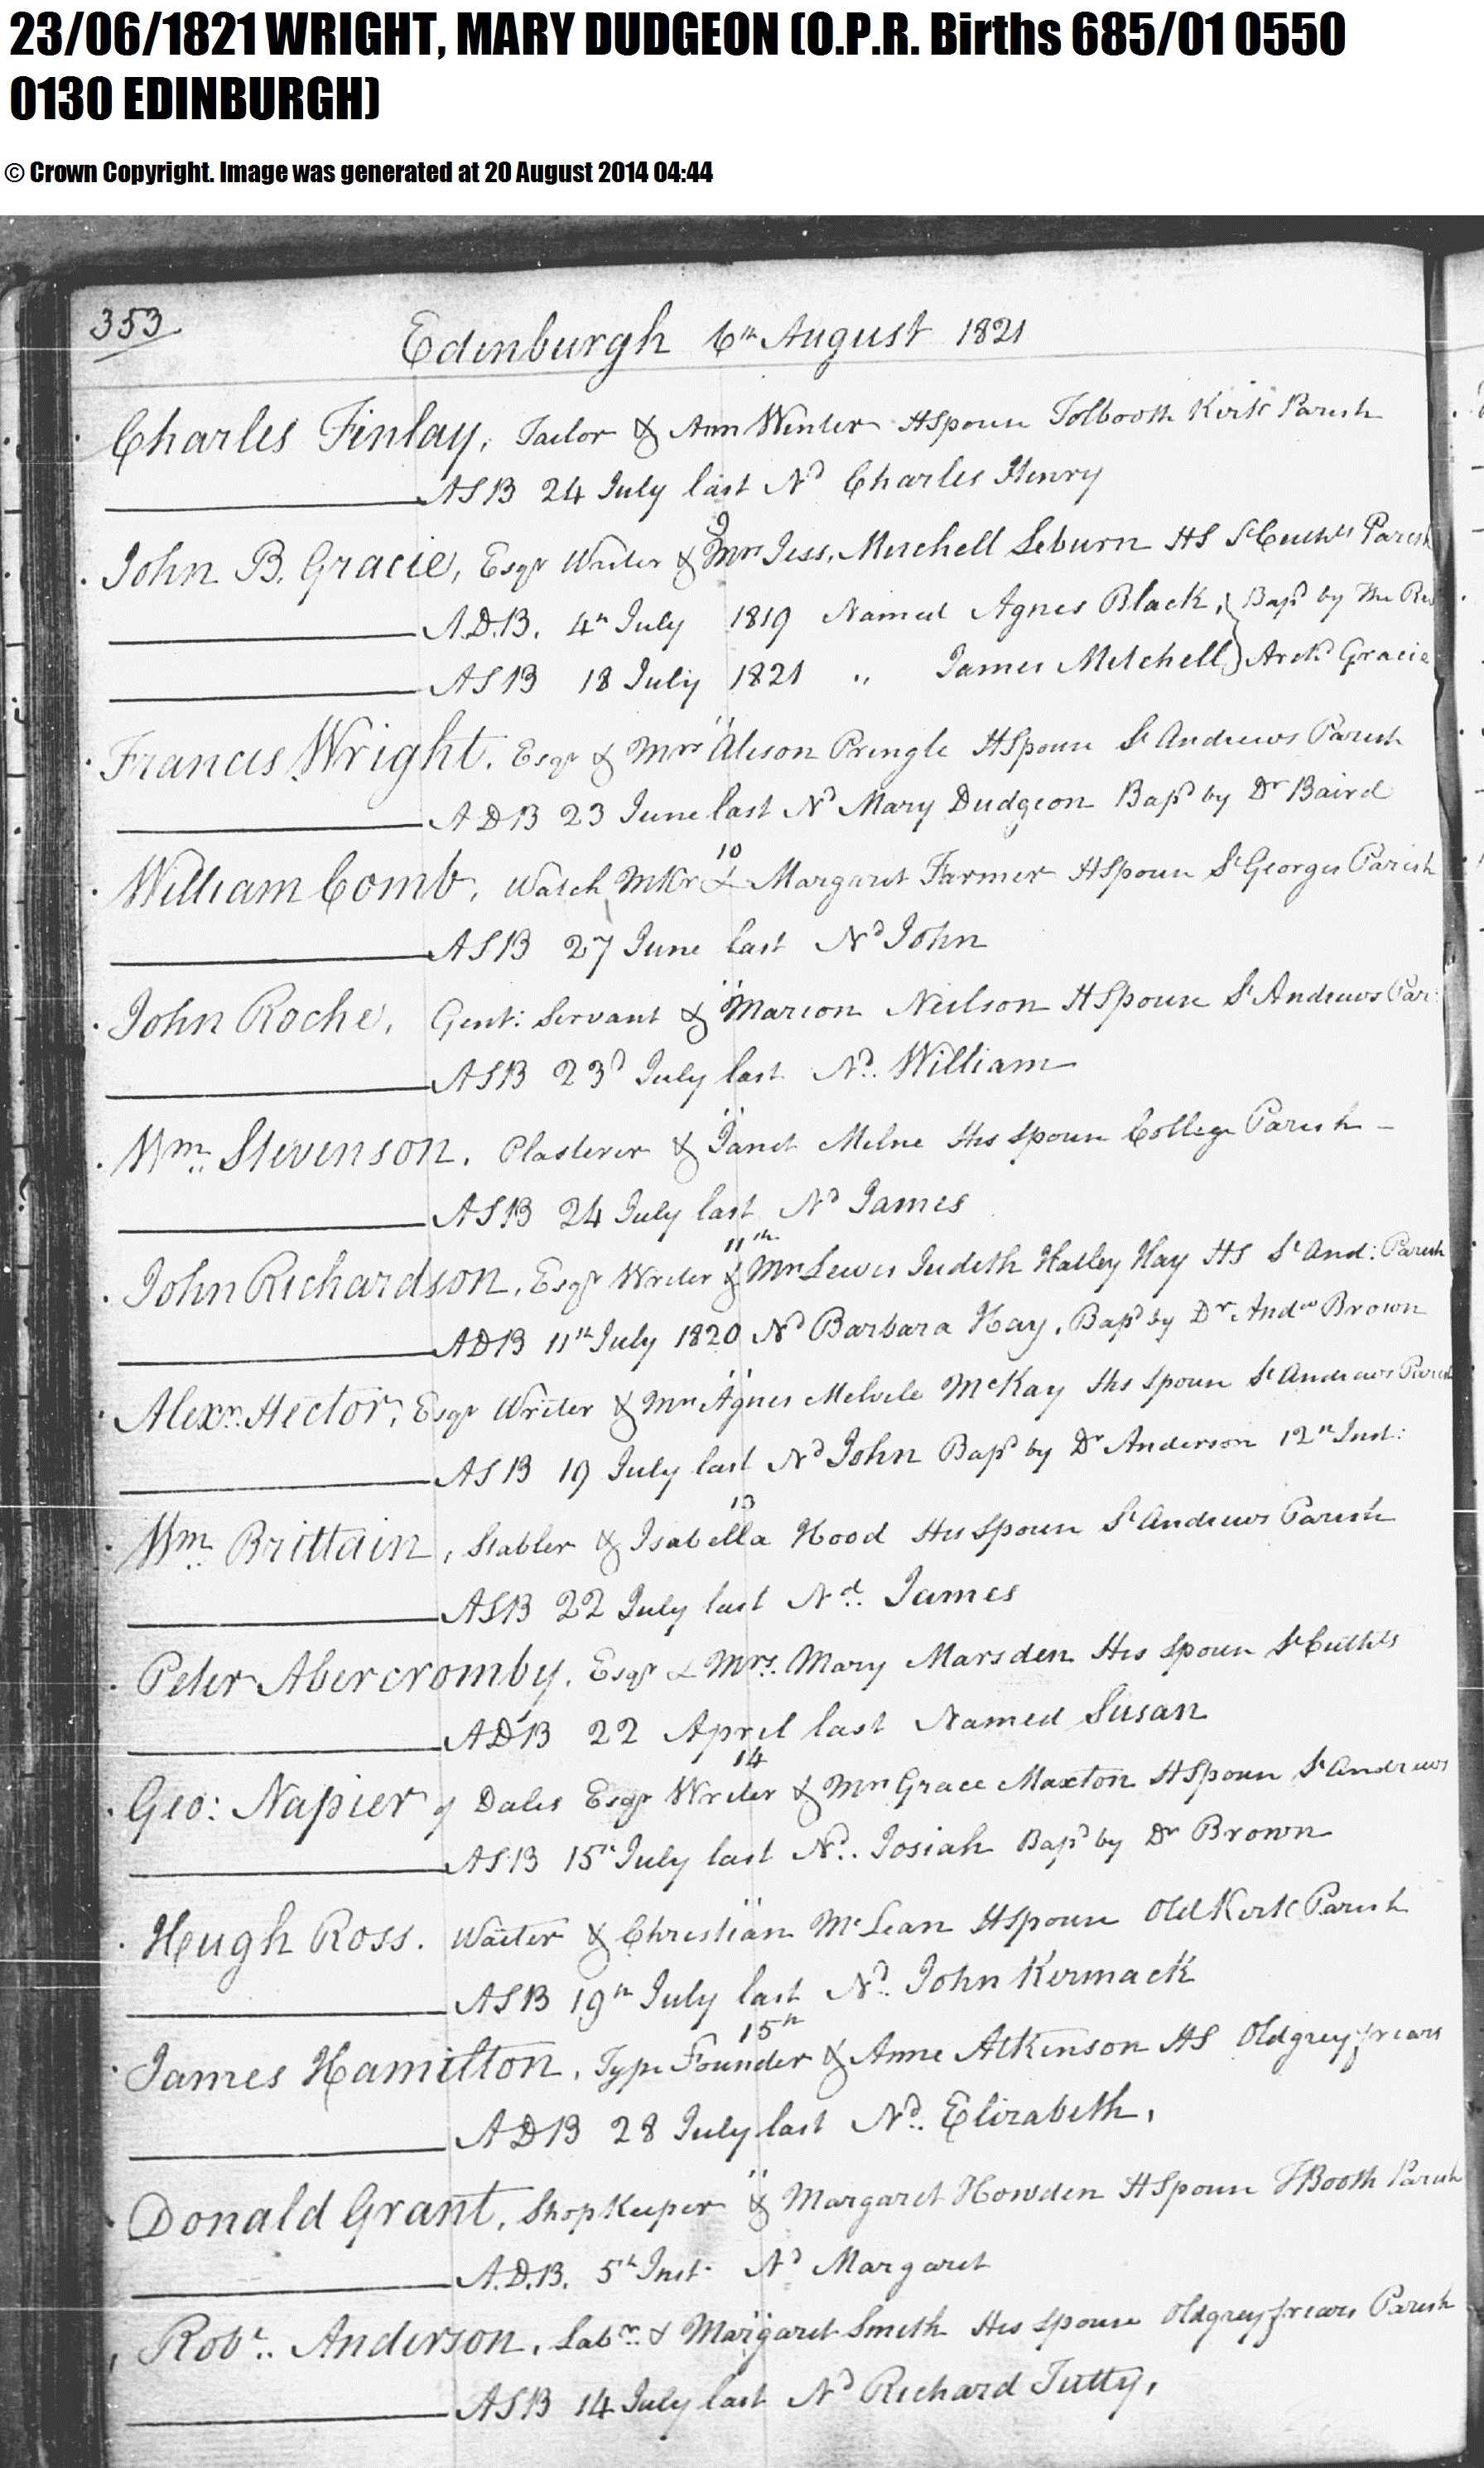 23/06/1821 WRIGHT, MARY DUDGEON (O.P.R. Births 685/01 0550
0130 EDINBURGH)
© Crown Copyright. Image was generated at 20 August 2014 04:44
353
Edinburgh 6th August 1821
Charles Finlay, Tailor & Ann Winter HSpouse Tolbooth Kirk Parish
ASB 24 July last Nd Charles Henry
9
John B. Gracie, Esqr Writer & Mrs Jess. Mitchell Seburn HS St Cuthts Parish
A.D.B. 4th July 1819 Named Agnes Black, Bapd by The Rev
ASB 18 July 1821 " James Mitchell Archd Gracie
"
Francis Wright, Esqr & Mrs Alison Pringle HSpouse St Andrews Parish
ADB 23 June last Nd Mary Dudgeon Bapd by Dr Baird
10
William Comb, Watch Mkr & Margaret Farmer HSpouse St Georges Parish
ASB 27 June last Nd John
"
John Roche, Gent: Servant & Marion Neilson HSpouse St Andrews Par:
ASB 23d July last Nd. William
"
Wm. Stevenson, Plasterer & Janet Milne His Spouse College Parish
ASB 24 July last Nd James
11th
John Richardson, Esqr Writer & Mrs Lewis Judith Hatley Hay HS St And: Parish
ADB 11th July 1820 Nd Barbara Hay, Bapd by Dr Andw Brown
"
Alexr. Hector, Esqr Writer & Mrs Agnes Melvile McKay His Spouse St Andrews Parish
ASB 19 July last Nd John Bapd by Dr Anderson 12th Inst:
13
Wm. Brittain, Stabler & Isabella Hood His Spouse St Andrews Parish
ASB 22 July last Nd. James
"
Peter Abercromby, Esqr & Mrs. Mary Marsden His Spouse St Cuthts
ADB 22 April last Named Susan
14
Geo: Napier of Dales Esqr Writer & Mrs Grace Maxton HSpouse St Andrews
ASB 15th July last Nd. Josiah Bapd by Dr Brown
"
Hugh Ross. Waiter & Christian McLean HSpouse Old Kirk Parish
ASB 19th July last Nd. John Kermack
15th
James Hamilton, Type Founder & Anne Atkinson HS Oldgreyfriars
ADB 28 July last Nd. Elizabeth,
"
Donald Grant, Shop Keeper & Margaret Howden HSpouse TBooth Parish
A.D.B. 5th Inst. Nd Margaret
"
Robt. Anderson, Labr. & Margaret Smith His Spouse Oldgreyfriars Parish
ASB 14 July last Nd Richard Tutty,